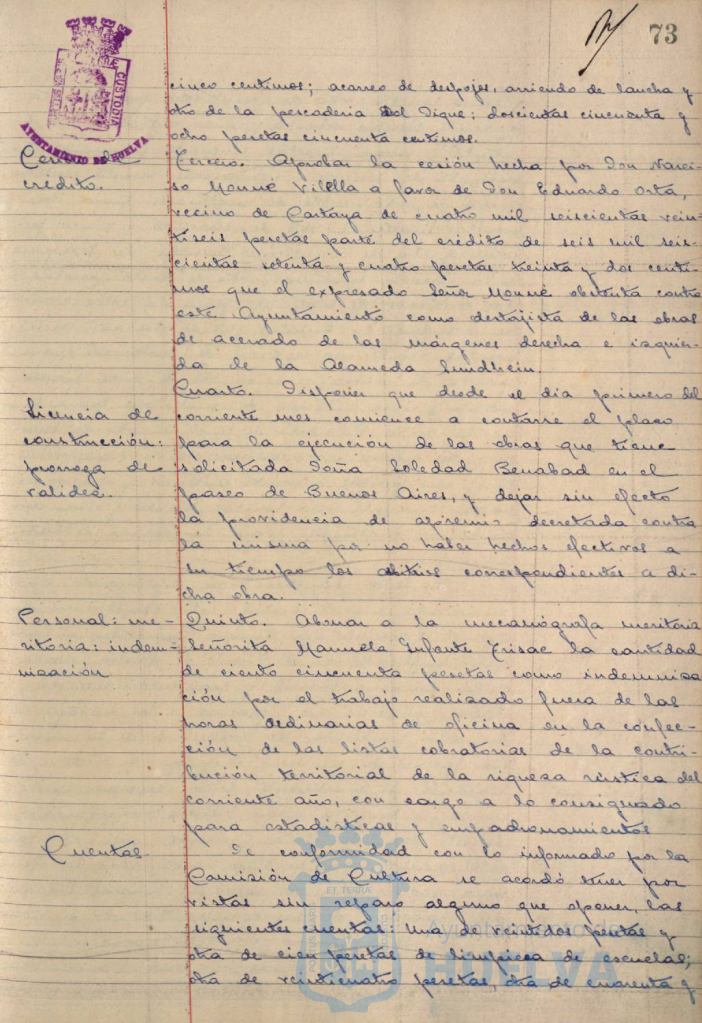 73
CUSTODIA
AYUNTAMIENTO DE HUELVA
cinco centimos; acarreo de despojos, arriendo de lancha y
otro de la pescaderia del Dique; doscientas cincuenta y
ocho pesetas cincuenta centimos.
Cesión de
crédito.
Tercero. Aprobar la cesión hecha por Don Narci-
so Monné Vilella a favor de Don Eduardo Orta,
vecino de Cartaya de cuatro mil seiscientas vein-
tiseis pesetas parte del crédito de seis mil seis-
cientas setenta y cuatro pesetas treinta y dos centi-
mos que el expresado Señor Monné obstenta contra
este Ayuntamiento como destajista de las obras
de acerado de las márgenes derecha e izquier-
da de la Alameda Sundhein.
Licencia de
construcción:
prorroga de
validez.
Cuarto. Disponer que desde el dia primero del
corriente mes comience a contarse el plazo
para la ejecución de las obras que tiene
solicitada Doña Soledad Benabad en el
paseo de Buenos Aires, y dejar sin efecto
la providencia de apremio decretada contra
la misma por no haber hechos efectivos a
su tiempo los arbitrios correspondientes a di-
cha obra.
Personal: me-
ritoria: indem-
nización
Quinto. Abonar a la mecanógrafa meritoria
Señorita Manuela Infante la cantidad
de ciento cincuenta pesetas como indemniza
ción por el trabajo realizado fuera de las
horas ordinarias de oficina en la confec-
ción de las listas cobratorias de la contri-
bución territorial de la riqueza rústica del
corriente año, con cargo a lo consignado
para estadisticas y empadronamientos
Cuentas
De conformidad con lo informado por la
Comisión de Cultura se acordó tener por
vistas sin reparo alguno que oponer, las
siguientes cuentas: una de veintidos pesetas y
otra de cien pesetas de limpieza de escuelas;
otra de veinticuatro pesetas, otra de cuarenta y
ET TERRA
Ayuntamiento de
HUELVA